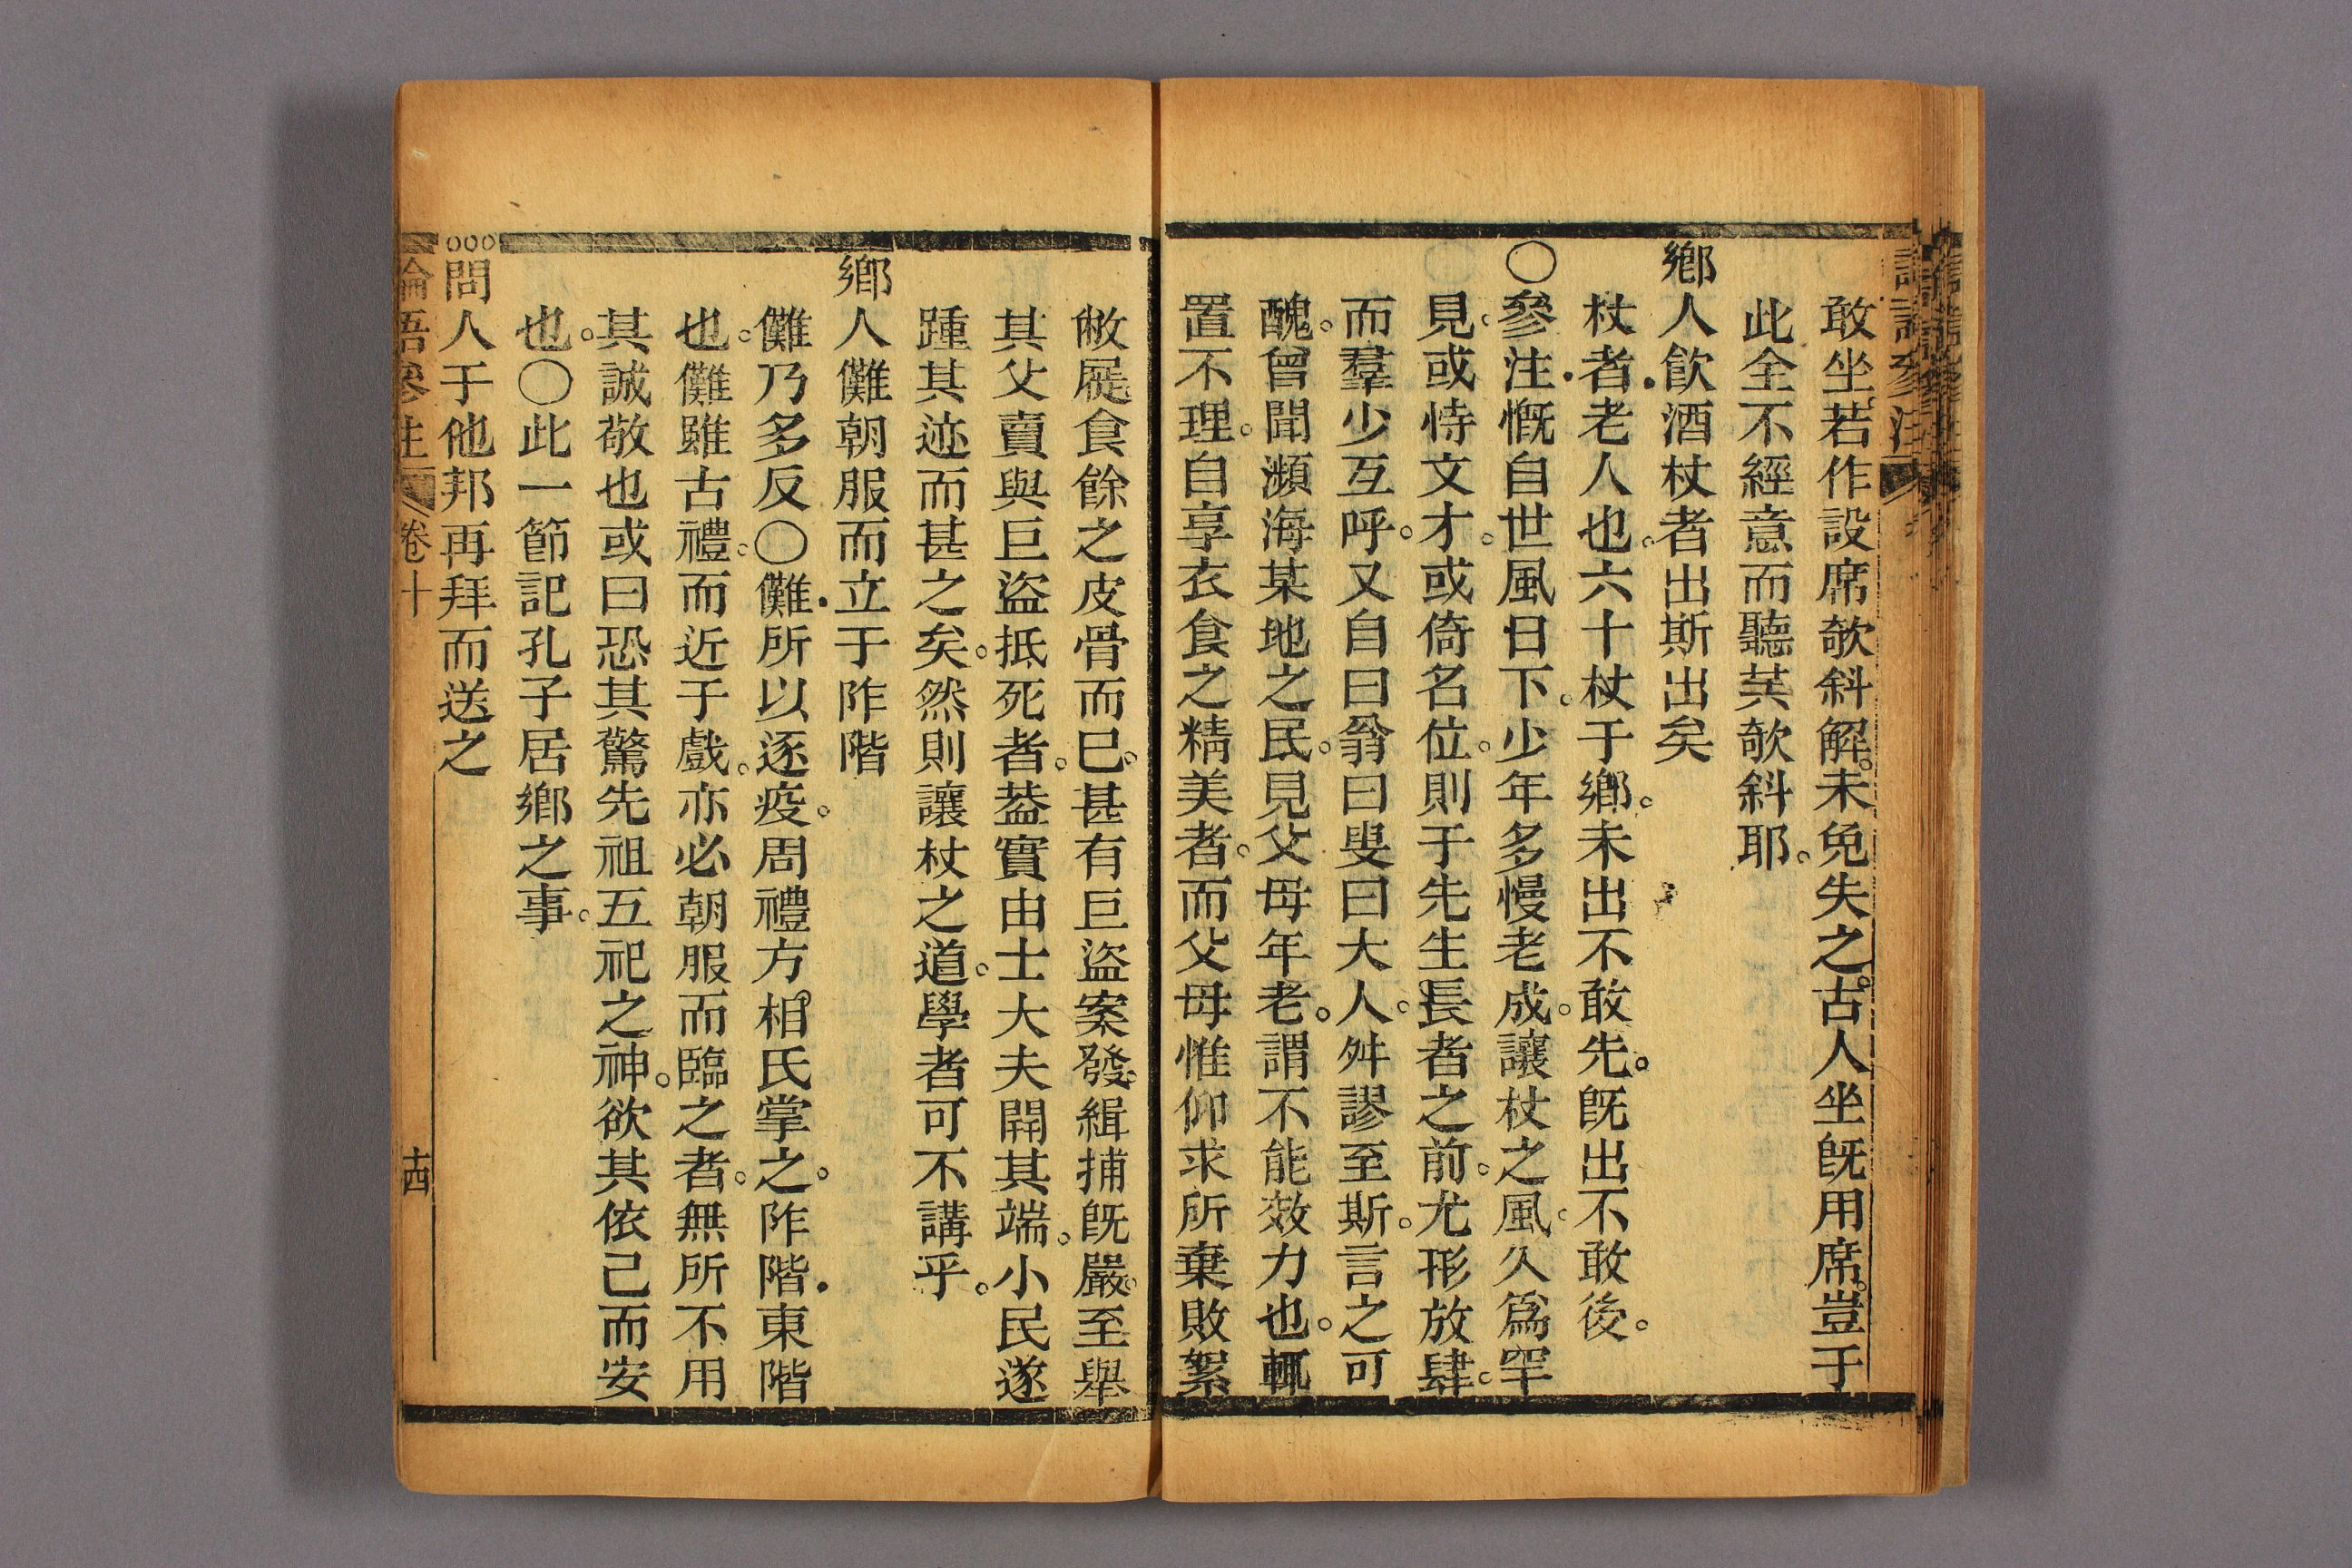 敢坐若作設席欹斜解。未免失之。古人坐旣用席。豈于
此全不經意而聽其欹斜耶。
鄉人飮酒杖者出斯出矣
杖者老人也。六十杖于鄉。未出不敢先。旣出不敢後。
〇參注慨自世風日下。少年多慢老成。讓杖之風。久爲罕
見。或恃文才。或倚名位。則于先生長者之前。尤形放肆。
而羣少互呼。又自曰翁曰叟曰大人。舛謬至斯。言之可
醜。曾聞瀕海某地之民。見父母年老。謂不能效力也。輒
置不理。自享衣食之精美者。而父母惟仰求所棄敗絮
敝屣食餘之皮骨而已。甚有巨盜案發。緝捕旣嚴。至舉
其父賣與巨盜抵死者。葢實由士大夫開其端。小民遂
踵其迹而甚之矣。然則讓杖之道。學者可不講乎。
鄉人儺朝服而立于阼階
儺乃多反〇儺所以逐疫。周禮方相氏掌之。阼階東階
也。儺雖古禮。而近于戲。亦必朝服而臨之者。無所不用
其誠敬也或曰恐其驚先祖五祀之神。欲其依己而安
也。〇此一節記孔子居鄉之事。
○○○問人于他邦再拜而送之
論語參注 卷十 十四